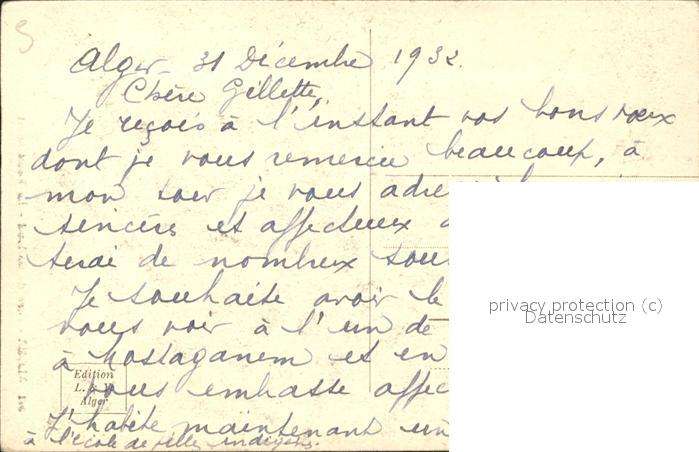 Alger 31 Décembre 1932.
Chère Gillette,
Je reçois à l'instant vos bons voeux
dont je vous remercie beaucoup, à
mon tour je vous
sincères et affectueux
de nombreux
Je souhaite avoir le
vous voir à l'un de
à Mostaganem et en
vous embrasse
J'habite maintenant
à l'école de filles indigènes.
Edition
L. & Y.
Alger
privacy protection (c)
Datenschutz